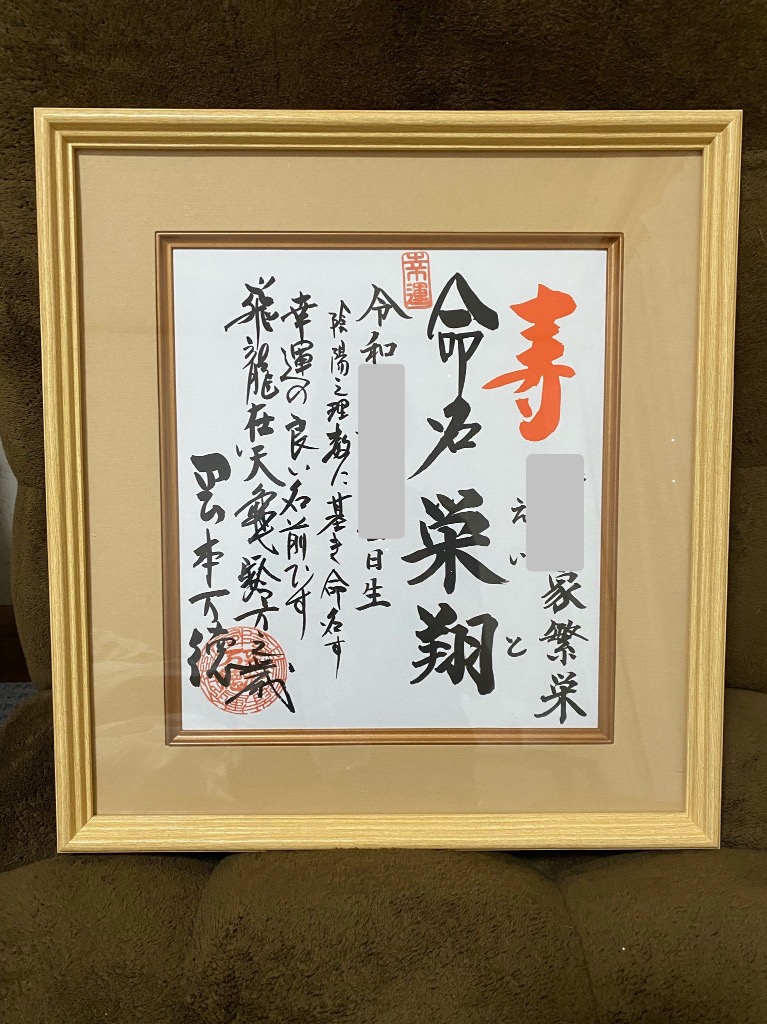 寿
家繁栄
えいと
命名 栄翔
幸運
令和
日生
陰陽之理数に基き命名す
幸運の良い名前です
飛龍在天亀齢万之歳
岡本万徳